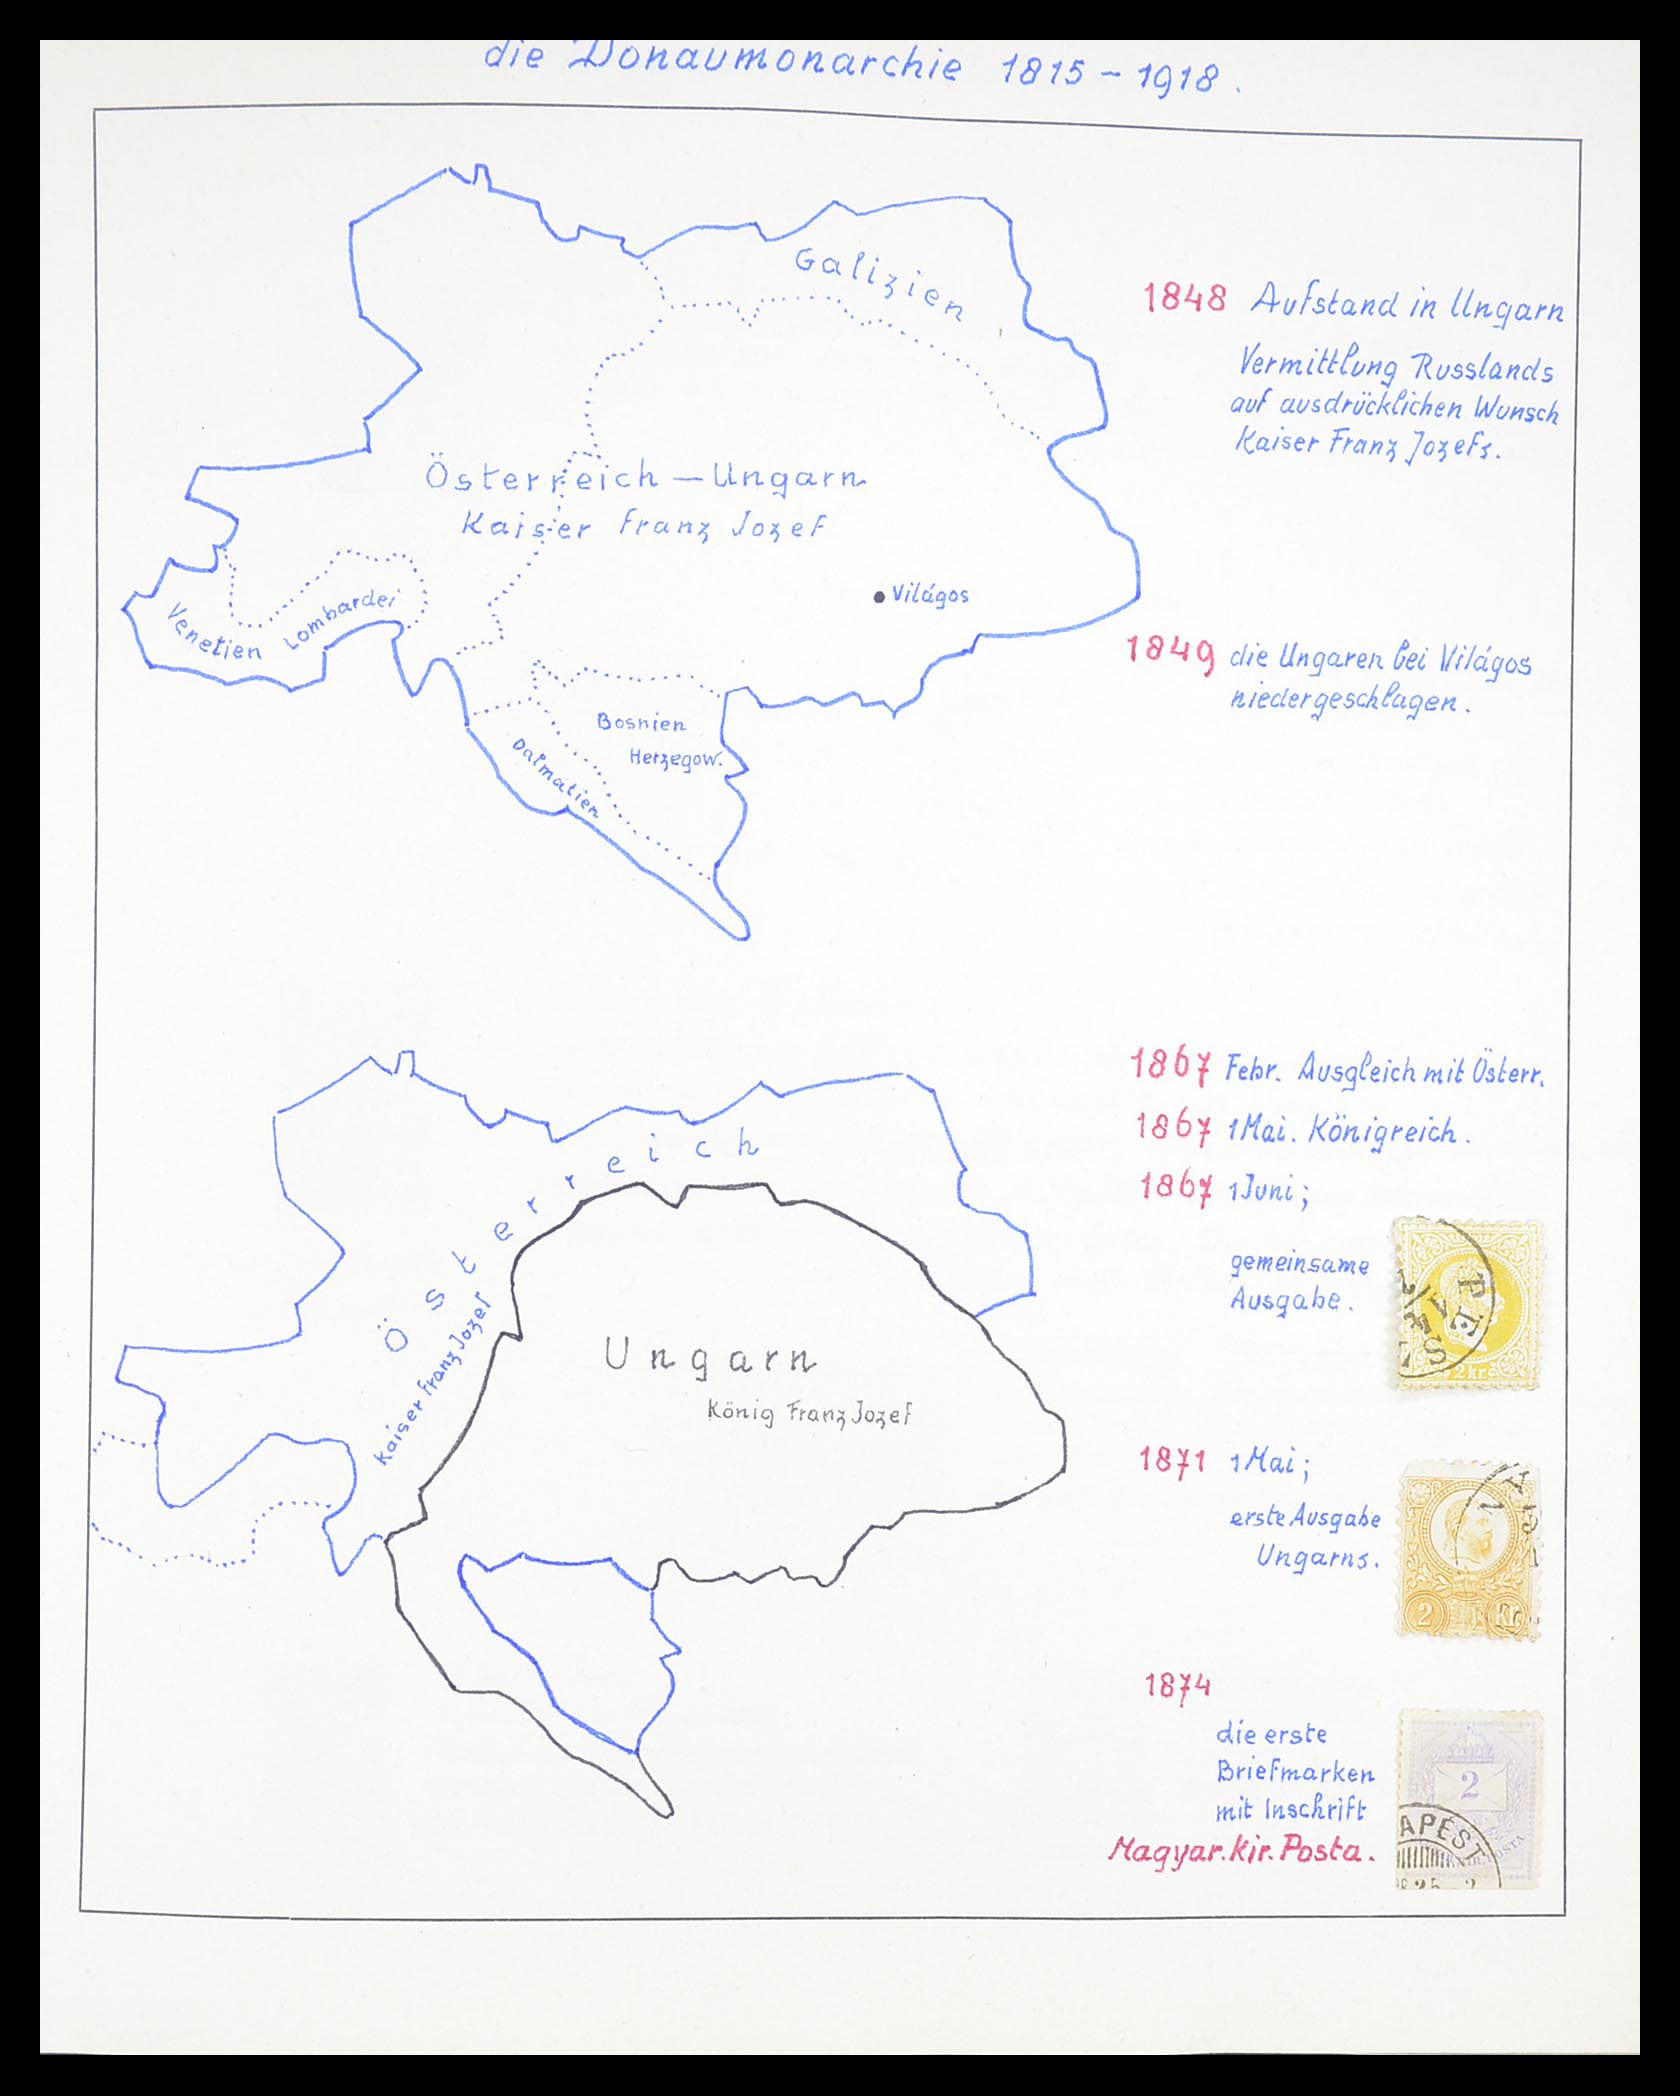 die Donaumonarchie 1815 - 1918.
Galizien
Österreich - Ungarn
Kaiser Franz Jozef
Világos
Venetien
Lombardei
Bosnien
Herzegow.
Dalmatien
1848 Aufstand in Ungarn
Vermittlung Russlands
auf ausdrücklichen Wunsch
Kaiser Franz Jozefs.
1849 die Ungaren bei Világos
niedergeschlagen.
Österreich
Kaiser Franz Jozef
Ungarn
König Franz Jozef
1867 Febr. Ausgleich mit Österr.
1867 1 Mai. Königreich.
1867 1 Juni;
gemeinsame
Ausgabe.
PES
2 kr.
1871 1 Mai;
erste Ausgabe
Ungarns.
2 Kr
1874
die erste
Briefmarken
mit Inschrift
Magyar. Kir. Posta.
2
APEST
KIR. POSTA